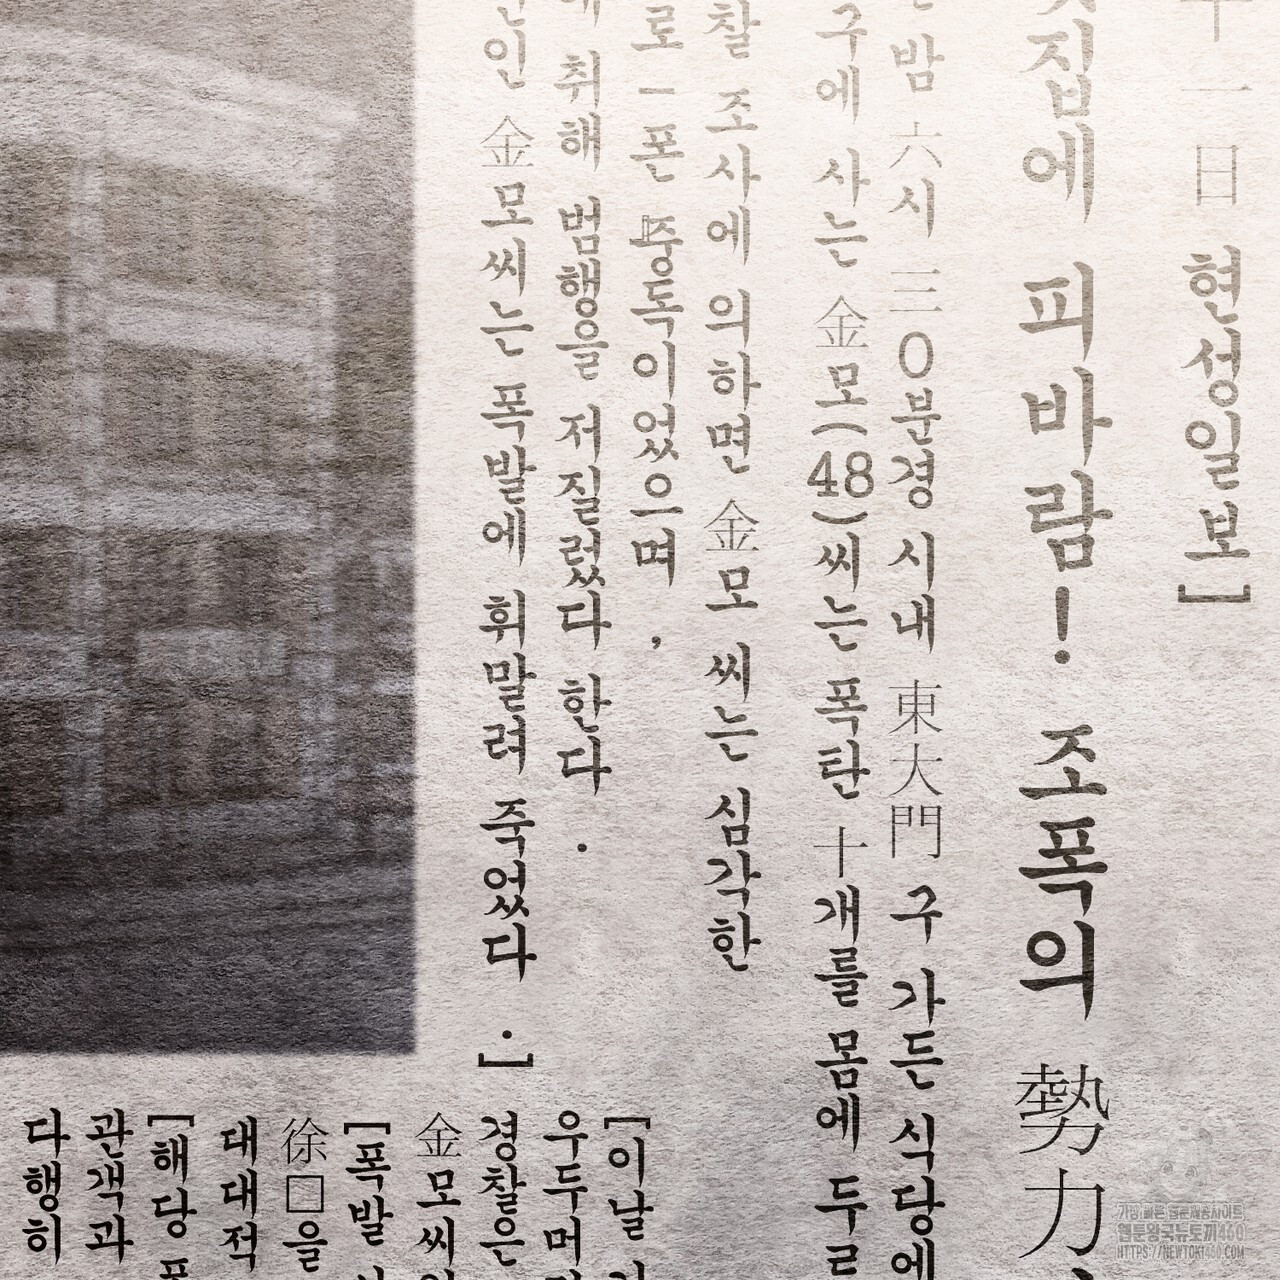 十一日 현성일보]
집에 피바람! 조폭의 勢力
밤 六시 三0분경 시내 東大門구 가든 식당에
구에 사는 金모(48)씨는 폭탄 十개를 몸에 두르
찰 조사에 의하면 金모 씨는 심각한
로-폰 중독이었으며,
에 취해 범행을 저질렀다 한다.
인 金모씨는 폭발에 휘말려 죽었다.]
[이날
우두머리
경찰은
金모씨의
[폭발
徐□을
대대적
[해당 폭
관객과
다행히
가장 빠른 웹툰제공사이트
웹툰왕국뉴토끼460
HTTPS://NEWTOKI460.COM